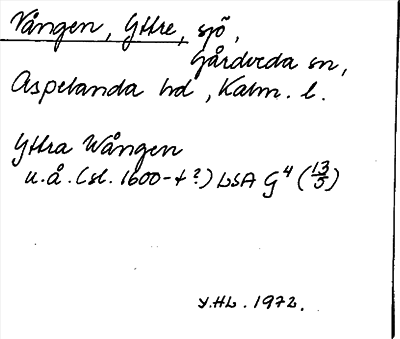 Vången, Yttre, sjö,
Gårdveda sn,
Aspelanda hd, Kalm. l.
Yttra Wången
u.å. (sl. 1600-t?) LSA G4 (13/5)
Y.HL. 1972.